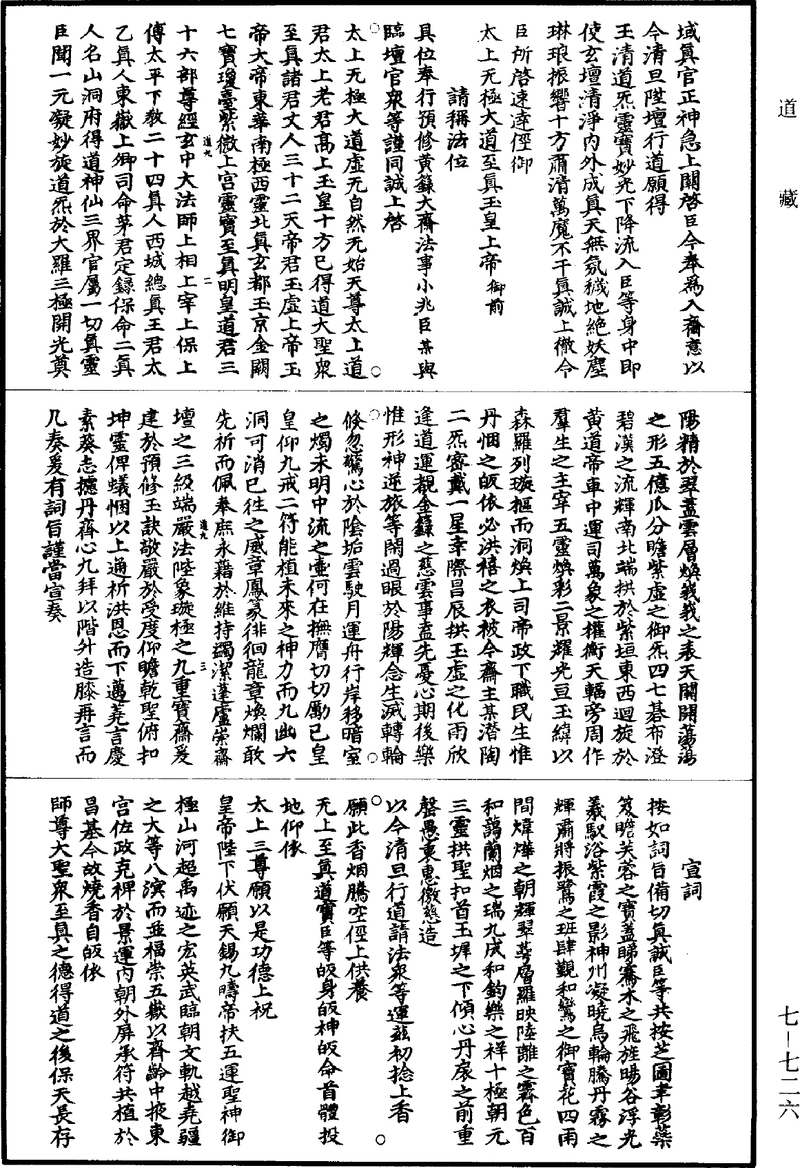 道藏
七—七二六
域真官正神急上關啓臣今奉爲入齋意以
今清旦陞壇行道願得
王清道炁靈寶妙光下降流入臣等身中即
使玄壇清淨內外成真天無氛穢地絕妖塵
琳琅振響十方肅清萬魔不干真誠上徹今
臣所啓速達徑御
太上无極大道至真玉皇上帝御前
請稱法位
具位奉行預修黃籙大齋法事小兆臣某與
臨壇官衆等謹同誠上啓
太上无極大道虛无自然元始天尊太上道
君太上老君高上玉皇十方已得道大聖衆
至真諸君丈人三十二天帝君玉虛上帝玉
帝大帝東華南極西靈北真玄都玉京金闕
七寶瓊臺紫微上宮靈寶至真明皇道君三
十六部尊經玄中大法師上相上宰上保上
傅太平下教二十四真人西城總真王君太
乙真人東嶽上卿司命茅君定錄保命二真
人名山洞府得道神仙三界官屬一切真靈
臣聞一元凝妙旋道炁於大羅三極開光奠
陽精於翠蓋雲層煥峩峩之表天關開蕩蕩
之形五億瓜分瞻紫虛之御炁四七碁布澄
碧漢之流輝南北端拱於紫垣東西迴旋於
黃道帝車中運司萬象之權衡天輻旁周作
羣生之主宰五靈煥彩二景耀光亘玉緯以
森羅列璇樞而洞煥上司帝政下職民生惟
丹悃之皈依必洪禧之衣被今齋主某潛陶
二炁密戴一星幸際昌辰拱玉虛之化雨欣
逢道運覩金籙之慈雲事盍先憂心期後樂
惟形神逆旅等閑過眼於陽輝念生滅轉輪
倏忽驚心於陰垢雲駛月運舟行岸移暗室
之燭未明中流之壺何在撫膺切切勵已皇
皇仰九戒二符能植未來之神力而九幽六
洞可消已往之威章鳳篆徘徊龍章煥爛敢
先祈而佩奉庶永藉於維持蠲潔蓬廬崇齋
壇之三級端嚴法陛象璇極之九重寶齋爰
建於預修玉訣敬嚴於受度仰瞻乾聖俯扣
坤靈俾蟻悃以上通祈洪恩而下邁蕘言慶
素葵志攄丹齊心九拜以階升造膝再言而
几奏爰有詞旨謹當宣奏
宣詞
按如詞旨備切真誠臣等共按芝圖聿彰蘂
笈瞻芙蓉之寶蓋睇騫木之飛旌暘谷浮光
羲馭浴紫霞之影神州凝曉烏輪騰丹霧之
輝肅將振鷺之班肆覲和鸞之御寶花四雨
間煒燁之朝輝翠蕚層羅映陸離之霽色百
和藹蘭烟之瑞九成和鈞樂之祥十極朝元
三靈拱聖扣首玉墀之下傾心丹扆之前重
罄愚衷惠徼慈造
以今清旦行道請法衆等運茲初捻上香
願此香烟騰空徑上供養
无上至真道寶臣等皈身皈神皈命首體投
地仰依
太上三尊願以是功德上祝
皇帝陛下伏願天錫九疇帝扶五運聖神御
極山河超禹迹之宏英武臨朝文軌越堯疆
之大等八溟而並福崇五嶽以齊齡中掖東
宮佐政克裨於景運內朝外屏承符共植於
昌基今故燒香自皈依
師尊大聖衆至真之德得道之後保天長存
道九 二
道九 三